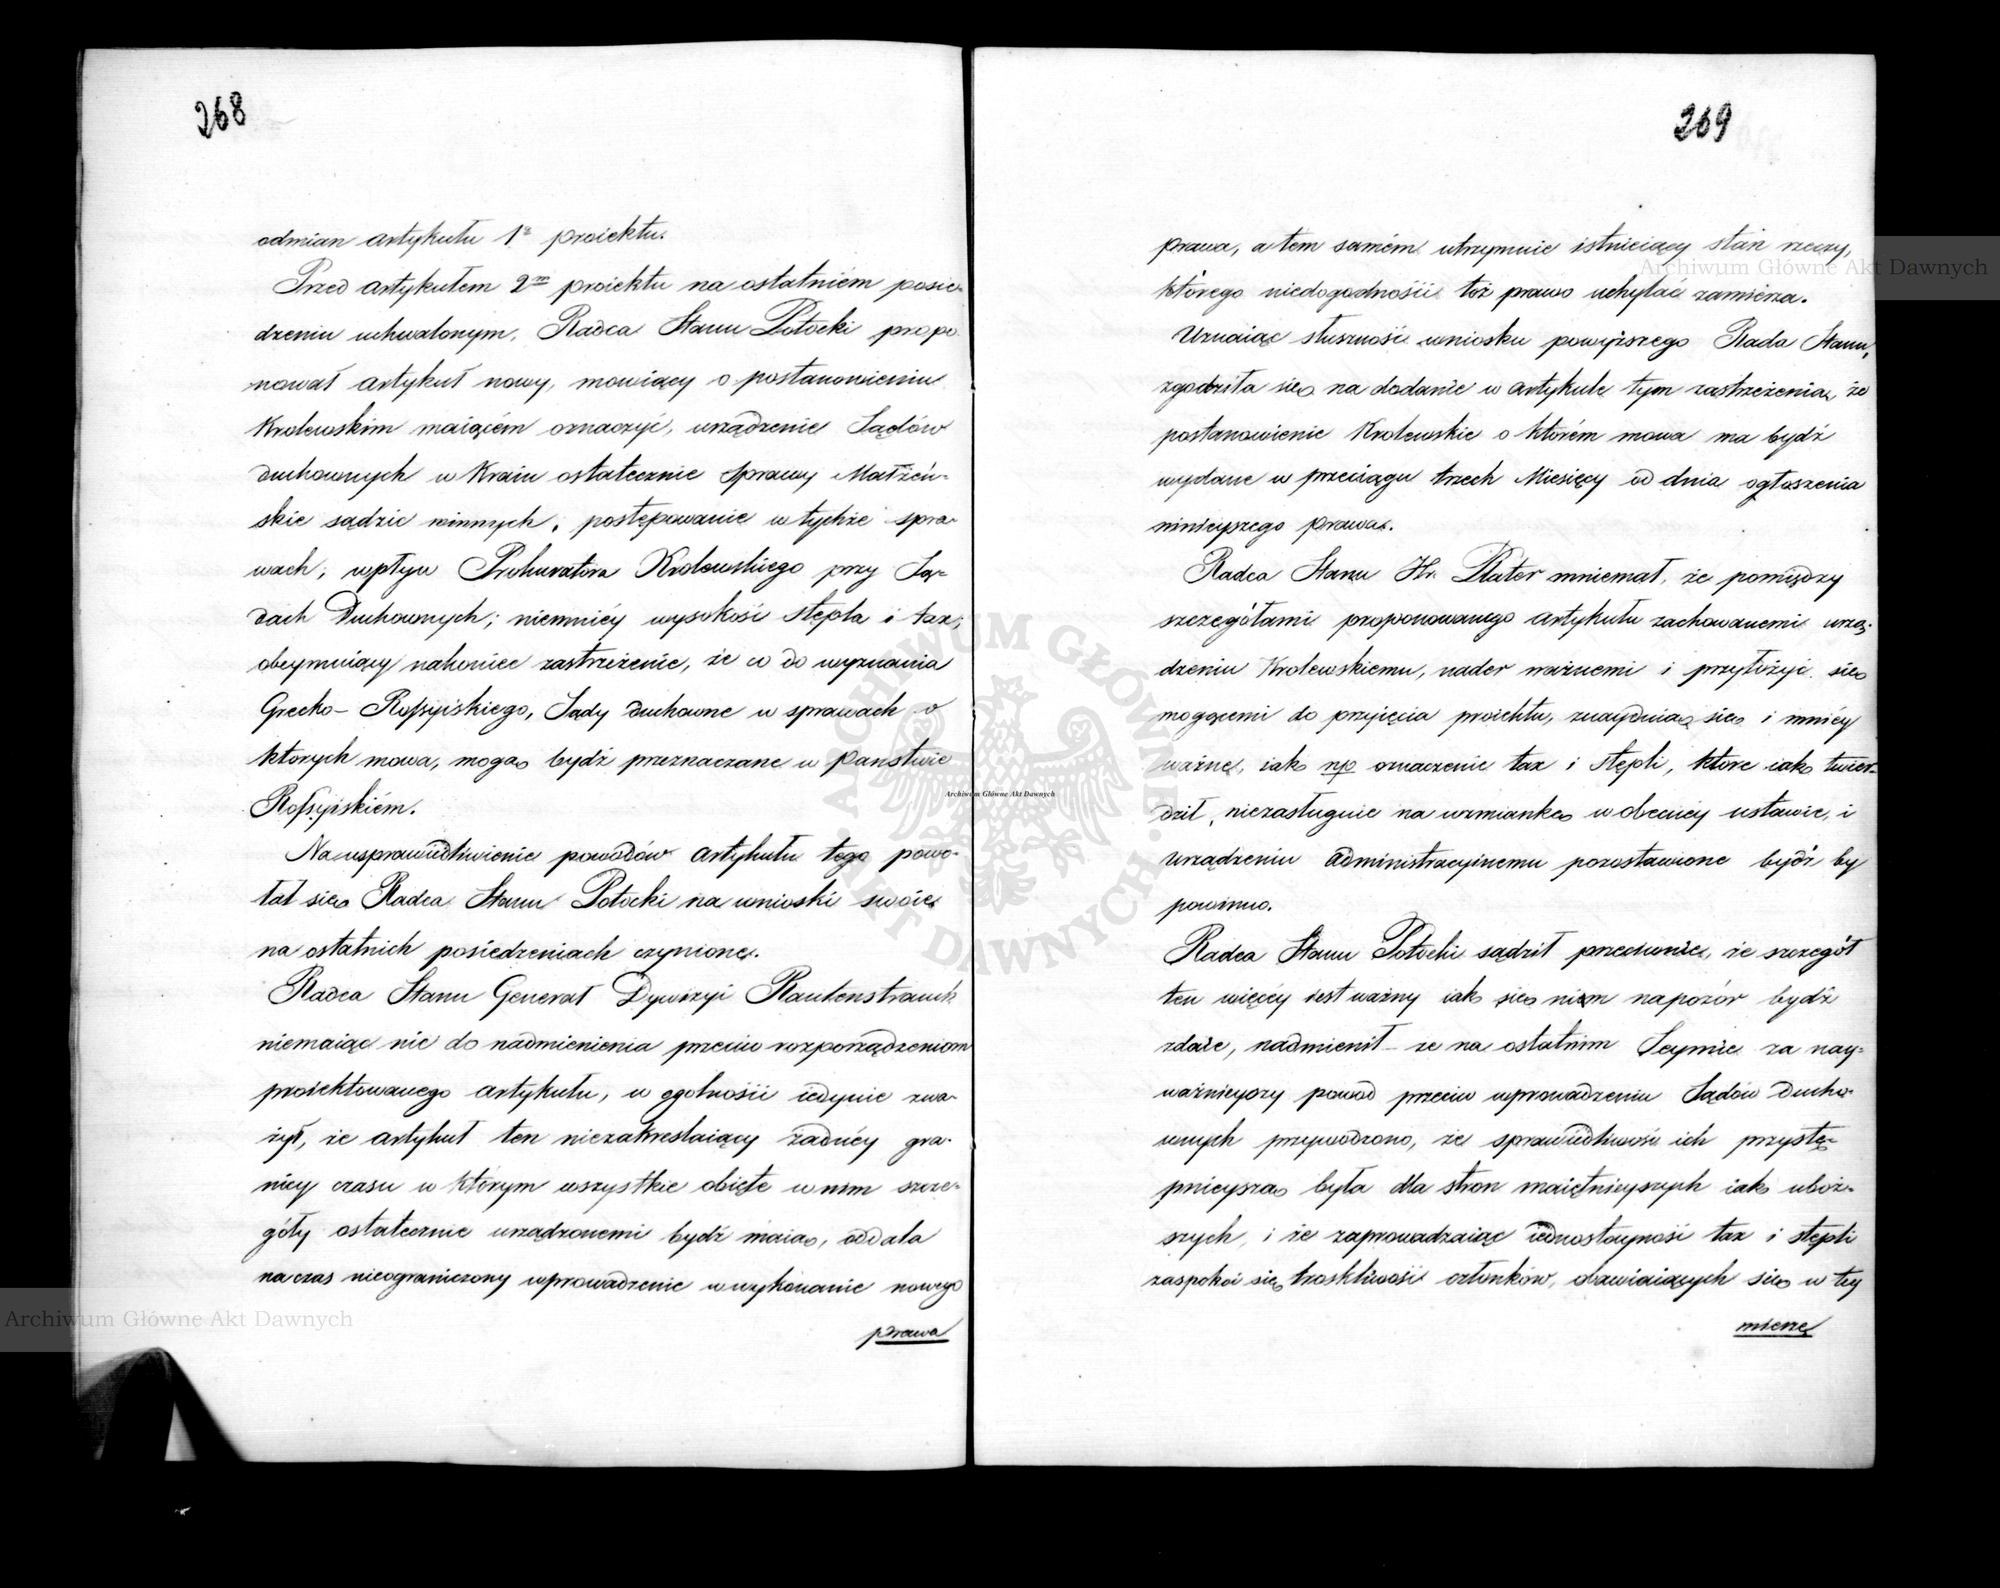 268
odmian artykułu 1o proiektu.
Przed artykułem 2m proiektu na ostatniém posie-
dzeniu uchwalonym, Radca Stanu Potocki propo-
nował artykuł nowy, mowiący o postanowieniu
Krolewskim maiącém oznaczyć, urządzenie Sądów
duchownych w Kraiu ostatecznie sprawy Małżeń-
skie sądzić winnych, postępowanie w tychże spra-
wach, wpływ Prokuratora Krolewskiego przy Są-
dach Duchownych; niemniéy wysokość stępla i tax;
obeymuiący nakoniec zastrzeżenie, że co do wyznania
Grecko-Rossyiskiego, Sądy duchowne w sprawach o
ktorych mowa, mogą bydź przeznaczane w Panstwie
Rossyiskiém.
Na usprawiedliwienie powodów artykułu tego powo-
łał się Radca Stanu Potocki na wnioski swoie
na ostatnich posiedzeniach czynione.
Radca Stanu Generał Dywizyi Rautenstrauch
niemaiąc nic do nadmienienia przeciw rozporządzeniom
proiektowanego artykułu, w ogolności iedynie zwa-
żył, że artykuł ten niezakreslaiący żadnéy gra-
nicy czasu w którym wszystkie obięte w nim szcze-
góły ostatecznie urządzonemi bydź maią, oddala
na czas nieograniczony wprowadzenie w wykonanie nowego
prawa
269
prawa, a tem samém utrzymuie istnieiący stan rzeczy,
którego niedogodności toż prawo uchylać zamierza.
Uznaiąc słuszność wniosku powyższego Rada Stanu,
zgodziła się na dodanie w artykule tym zastrzeżenia, że
postanowienie Krolewskie o którém mowa ma bydź
wydane w przeciągu trzech Miesięcy od dnia ogłoszenia
ninieyszego prawa.
Radca Stanu Hr. Plater mniemał, że pomiędzy
szczegółami proponowanego artykułu zachowanemi urzą-
dzeniu Krolewskiemu, nader ważnemi i przyłożyć się
mogącemi do przyięcia proiektu, znayduią się i mniéy
ważne, iako np oznaczenie tax i stępli, które iako twier-
dził, niezasługuie na wzmiankę w obecnéy ustawie, i
urządzeniu administracyinemu pozostawione bydź by
powinno.
Radca Stanu Potocki sądził przeciwnie, że szczegół
ten więcéy iest ważny iak się niem napozór bydź
zdaie, nadmienił że na ostatnim Seymie za nay-
ważnieyszy powód przeciw wprowadzeniu Sądów Ducho-
wnych przywodzono, że sprawiedliwość ich przystę-
pnieyszą była dla stron maiętnieyszych iak uboż-
szych, i że zaprowadzaiąc iednostayność tax i stępli
zaspokoi się troskliwość członków, obawiaiących się w tey
mierze